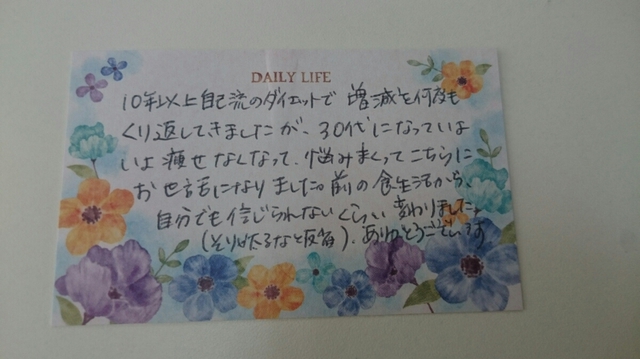 DAILY LIFE
10年以上自己流のダイエットで 増減を何度も
くり返してきましたが、30代になっていよ
いよ痩せなくなって、悩みまくってこちらに
お世話になりました。前の食生活から、
自分でも信じられないくらい変わりました。
(そりゃ太るなと反省)。ありがとうございます